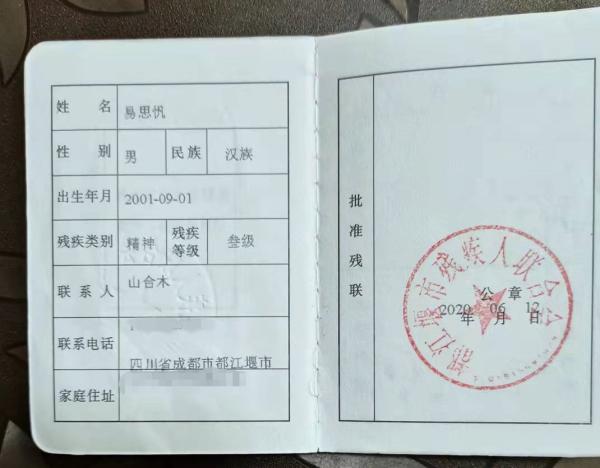 姓 名 易思忛
性 别 男 民族 汉族
出生年月 2001-09-01
残疾类别 精神 残疾等级 叁级
联系人 山合木
联系电话
四川省成都市都江堰市
家庭住址
批准残联
都江堰市残疾人联合会
公 章
2020 06 12
年 月 日